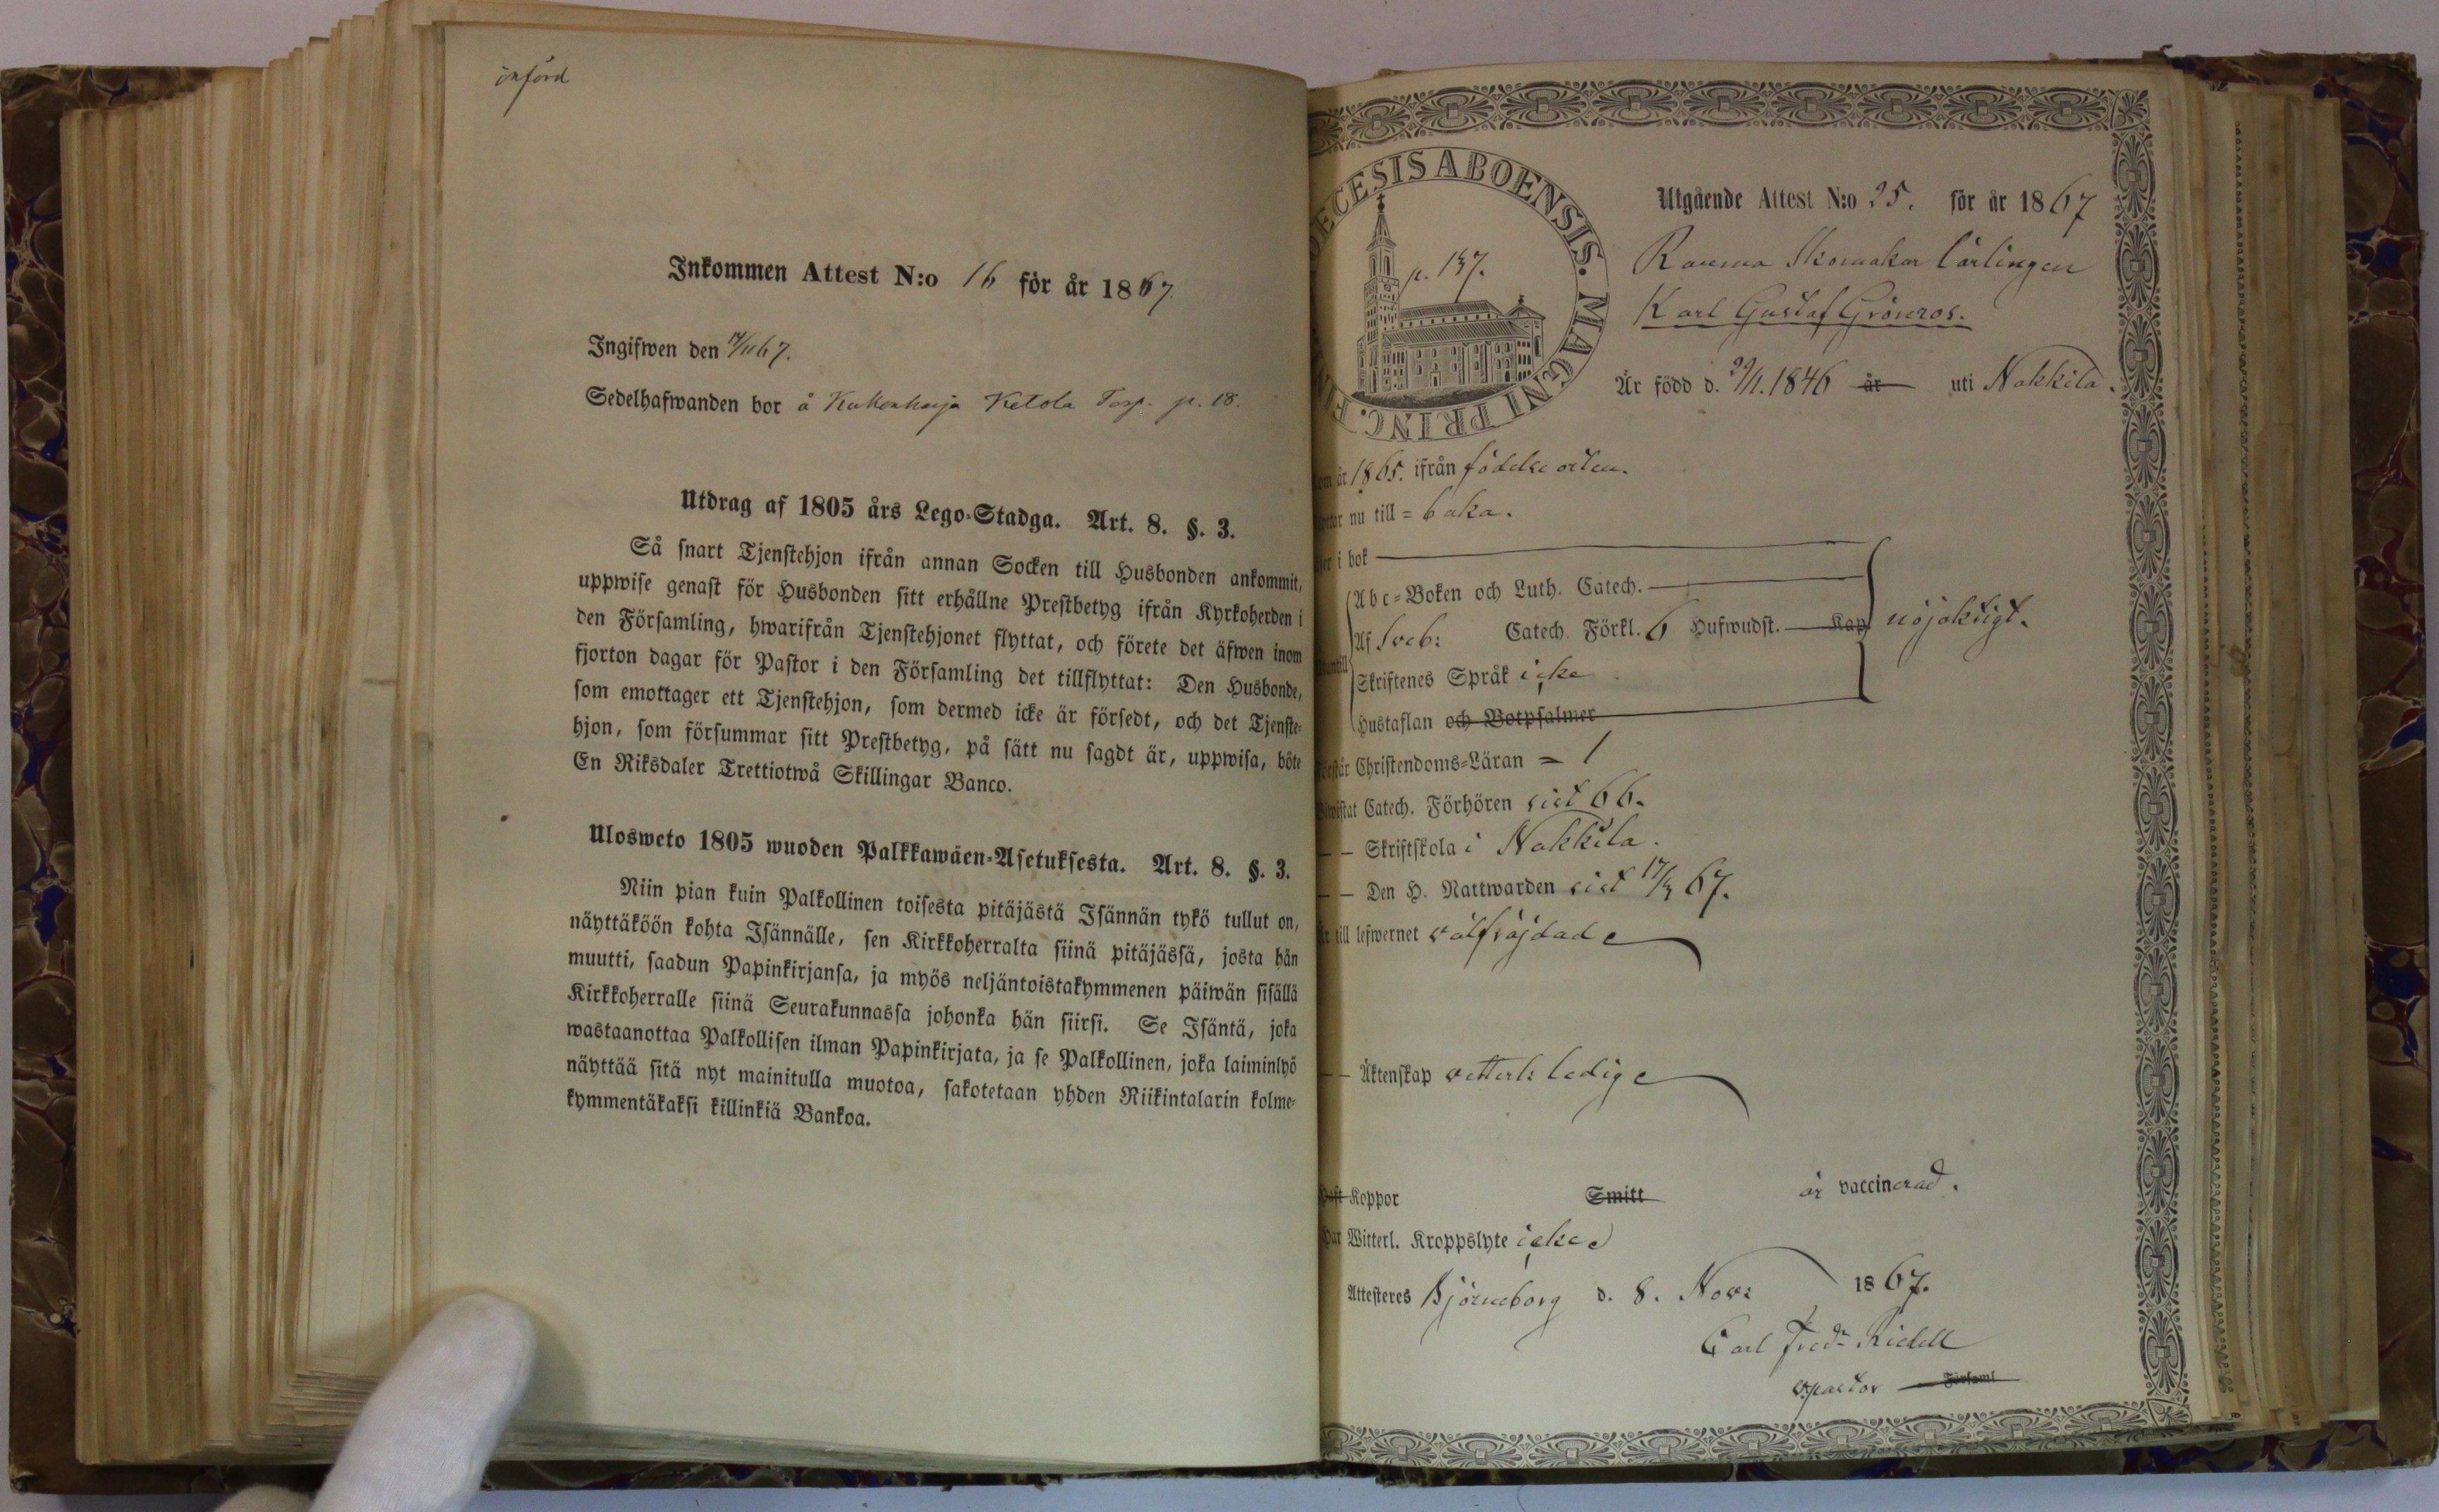 införd
Inkommen Attest N:o 16 för år 1867.
Ingifwen den 14/11 67.
Sedelhafwanden bor å Kukonharja Ketola Torp. p. 18.
Utdrag af 1805 års Lego-Stadga. Art. 8. §. 3.
Så snart Tjenstehjon ifrån annan Socken till Husbonden ankommit,
uppwise genast för Husbonden sitt erhållne Prestbetyg ifrån Kyrkoherden i
den Församling, hwarifrån Tjenstehjonet flyttat, och förete det äfwen inom
fjorton dagar för Pastor i den Församling det tillflyttat: Den Husbonde,
som emottager ett Tjenstehjon, som dermed icke är försedt, och det Tjenste-
hjon, som försummar sitt Prestbetyg, på sätt nu sagdt är, uppwisa, böte
En Riksdaler Trettiotwå Skillingar Banco.
Ulosweto 1805 wuoden Palkkawäen-Asetuksesta. Art. 8. §. 3.
Niin pian kuin Palkollinen toisesta pitäjästä Isännän tykö tullut on,
näyttäköön kohta Isännälle, sen Kirkkoherralta siinä pitäjässä, josta hän
muutti, saadun Papinkirjansa, ja myös neljäntoistakymmenen päiwän sisällä
Kirkkoherralle siinä Seurakunnassa johonka hän siirsi. Se Isäntä, joka
wastaanottaa Palkollisen ilman Papinkirjata, ja se Palkollinen, joka laiminlyö
näyttää sitä nyt mainitulla muotoa, sakotetaan yhden Riikintalarin kolme-
kymmentäkaksi killinkiä Bankoa.
ECESIS ABOENSIS. MAGNI PRINC. FI
p. 137.
Utgående Attest N:o 25. för år 1867
Rauma Skomakar lärlingen
Karl Gustaf Grönros.
Är född d. /1. 1846 år uti Nakkila.
år 1865. ifrån födelse orten.
nu till = baka.
i bok
Abc-Boken och Luth. Catech.
Af Sveb: Catech. Förkl. 6 Hufwudst. Kap nöjaktigt.
Skriftenes Språk icke
Hustaflan och Botpsalmer
Christendoms-Läran = 1
Catech. Förhören sist 66.
— — Skriftskola i Nakkila.
— — Den H. Nattwarden sist 17/3 67.
till lefwernet välfräjdade
— — Äktenskap vetterl: ledige
Koppor Smitt är vaccinerad.
Har Witterl. Kroppslyte icke
Attesteres Björneborg d. 8. Nov: 1867.
Carl Fredr Ridell
v.pastor Församl